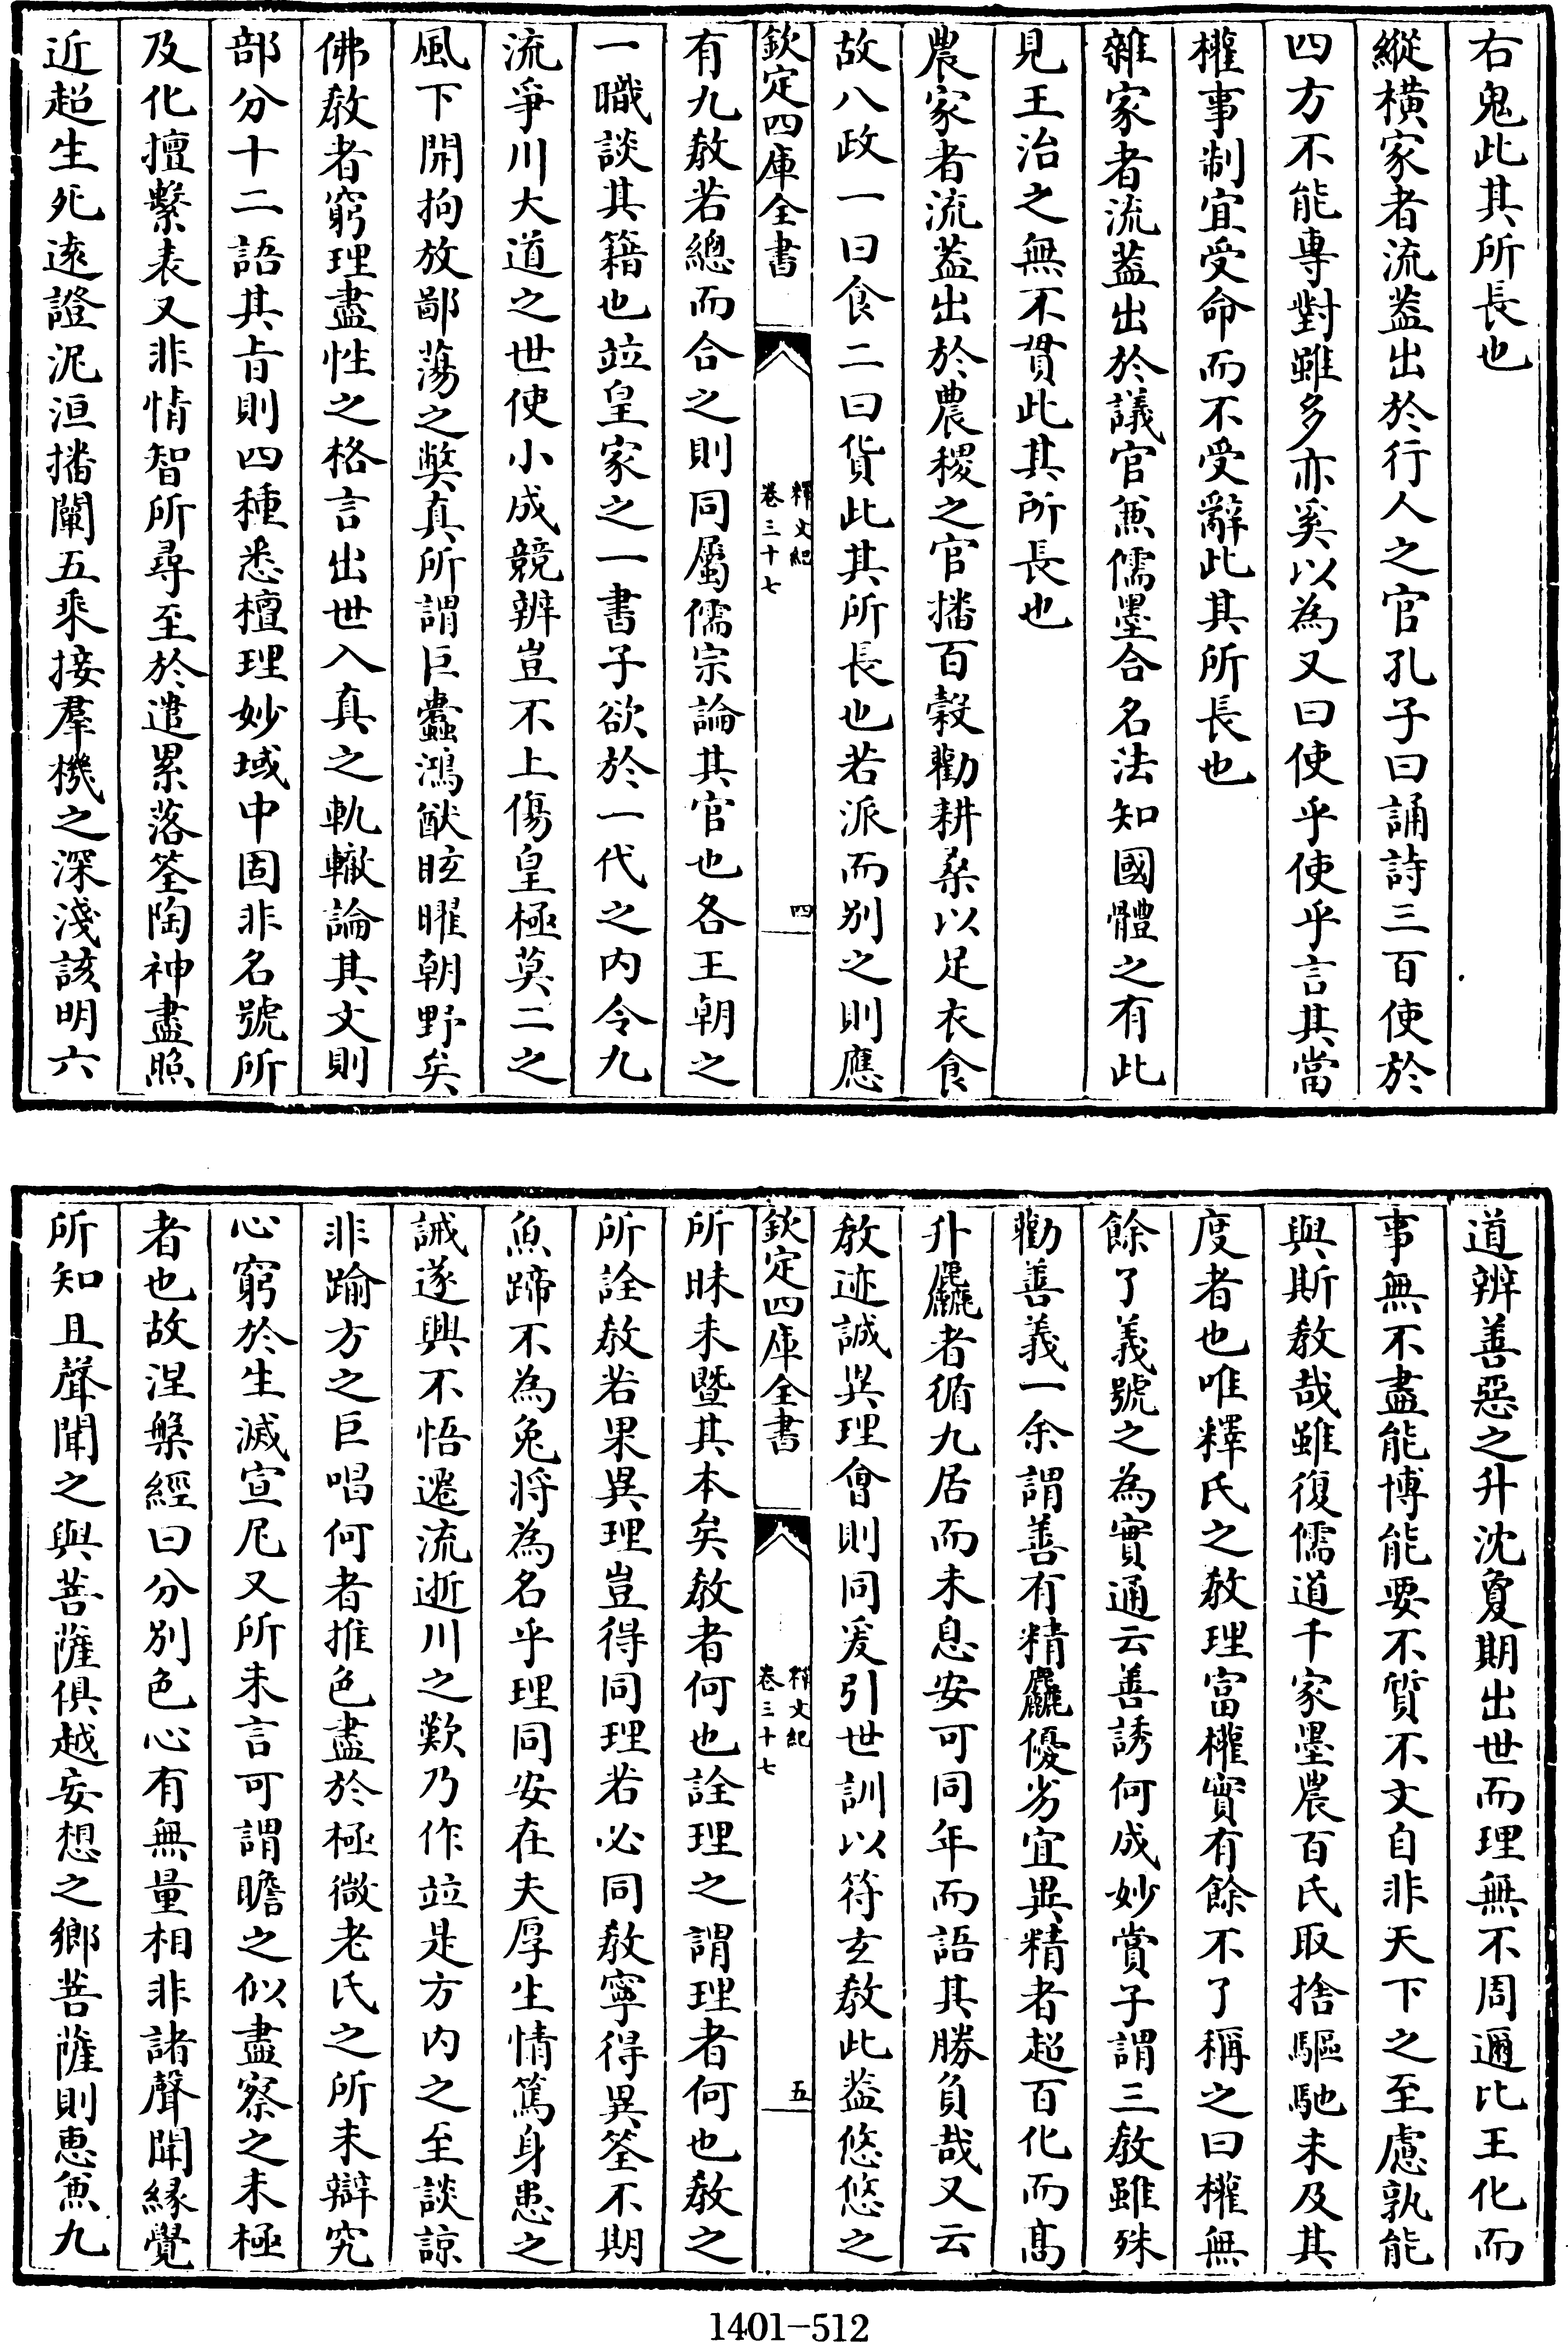 右鬼此其所長也
縱横家者流葢出於行人之官孔子曰誦詩三百使於
四方不能專對雖多亦奚以為又曰使乎使乎言其當
權事制宜受命而不受辭此其所長也
雜家者流葢出於議官兼儒墨合名法知國體之有此
見王治之無不貫此其所長也
農家者流葢出於農稷之官播百穀勸耕桑以足衣食
故八政一曰食二曰貨此其所長也若派而别之則應
欽定四庫全書
釋文紀
卷三十七
四
有九敎若總而合之則同屬儒宗論其官也各王朝之
一職談其籍也竝皇家之一書子欲於一代之内令九
流爭川大道之世使小成競辨豈不上傷皇極莫二之
風下開拘放鄙蕩之弊真所謂巨蠹鴻猷眩曜朝野矣
佛敎者窮理盡性之格言出世入真之軌轍論其文則
部分十二語其㫖則四種悉檀理妙域中固非名號所
及化擅繫表又非情智所尋至於遣累落筌陶神盡照
近超生死逺證泥洹播闡五乘接羣機之深淺該明六
道辨善惡之升沈敻期出世而理無不周邇比王化而
事無不盡能博能要不質不文自非天下之至慮孰能
與斯敎哉雖復儒道千家墨農百氏取捨驅馳未及其
度者也唯釋氏之敎理富權實有餘不了稱之曰權無
餘了義號之為實通云善誘何成妙賞子謂三敎雖殊
勸善義一余謂善有精麤優劣宜異精者超百化而髙
升麤者循九居而未息安可同年而語其勝負哉又云
敎迹誠異理㑹則同爰引世訓以符玄敎此葢悠悠之
欽定四庫全書
釋文紀
卷三十七
五
所昧未暨其本矣敎者何也詮理之謂理者何也敎之
所詮敎若果異理豈得同理若必同敎寧得異筌不期
魚蹄不為兔将為名乎理同安在夫厚生情篤身患之
誡遂興不悟遷流逝川之歎乃作竝是方内之至談諒
非踰方之巨唱何者推色盡於極微老氏之所未辯究
心窮於生滅宣尼又所未言可謂瞻之似盡察之未極
者也故涅槃經曰分别色心有無量相非諸聲聞緣覺
所知且聲聞之與菩薩俱越妄想之鄉菩薩則恵兼九
1401-512